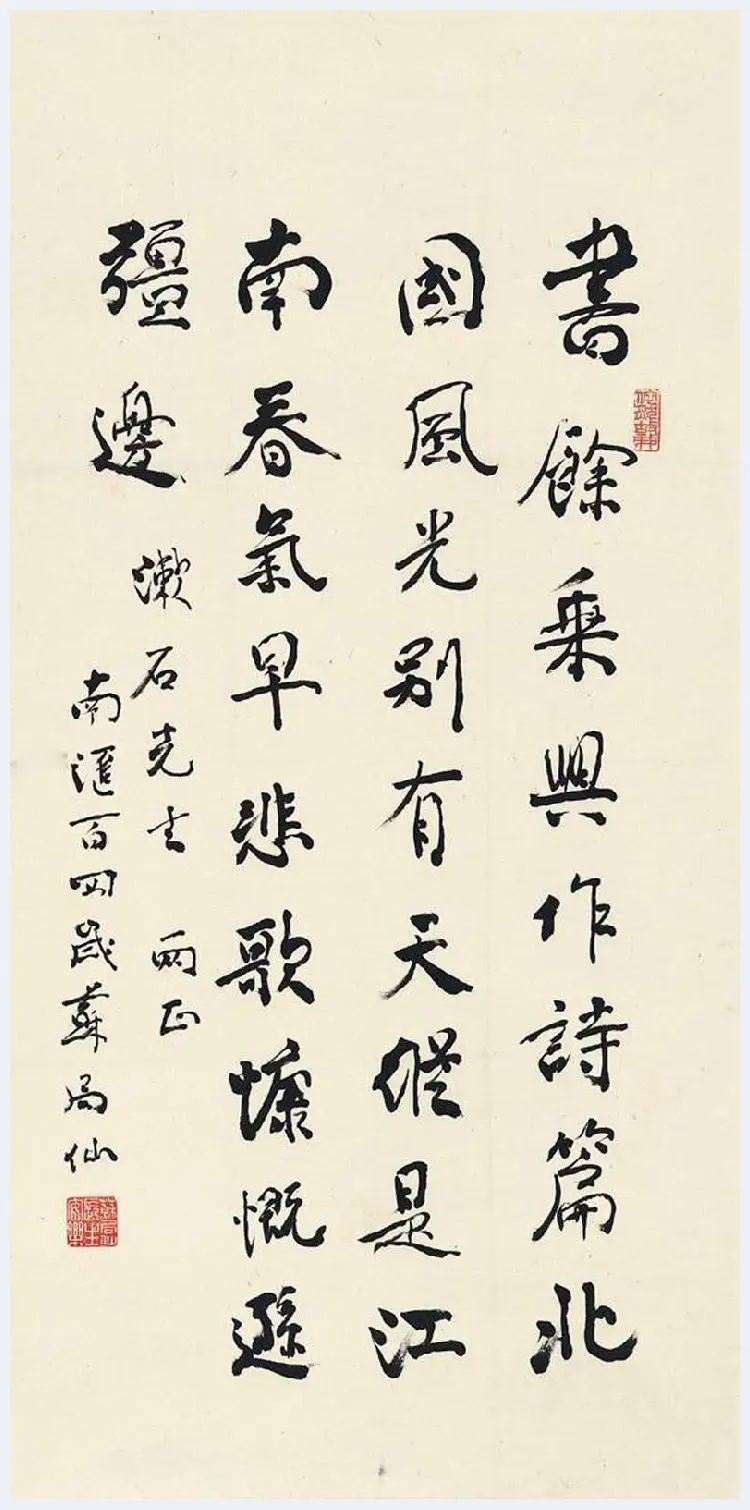 書餘乘興作詩篇北
國風光別有天縱是江
南春氣早悲歌慷慨遜
疆邊
漱石先生 兩正
南匯百四歲蘇局仙